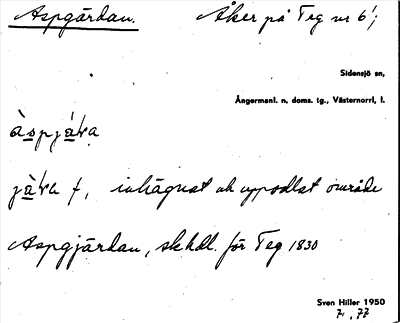 Aspgärdan. Åker på Teg nr 6¹;
Sidensjö sn,
Ångermanl. n. doms. tg., Västernorrl. l.
jä̀ʹra f, inhägnat och uppodlat område
Aspgjärdan, sk.hdl. för Teg 1830
Sven Hiller 1950